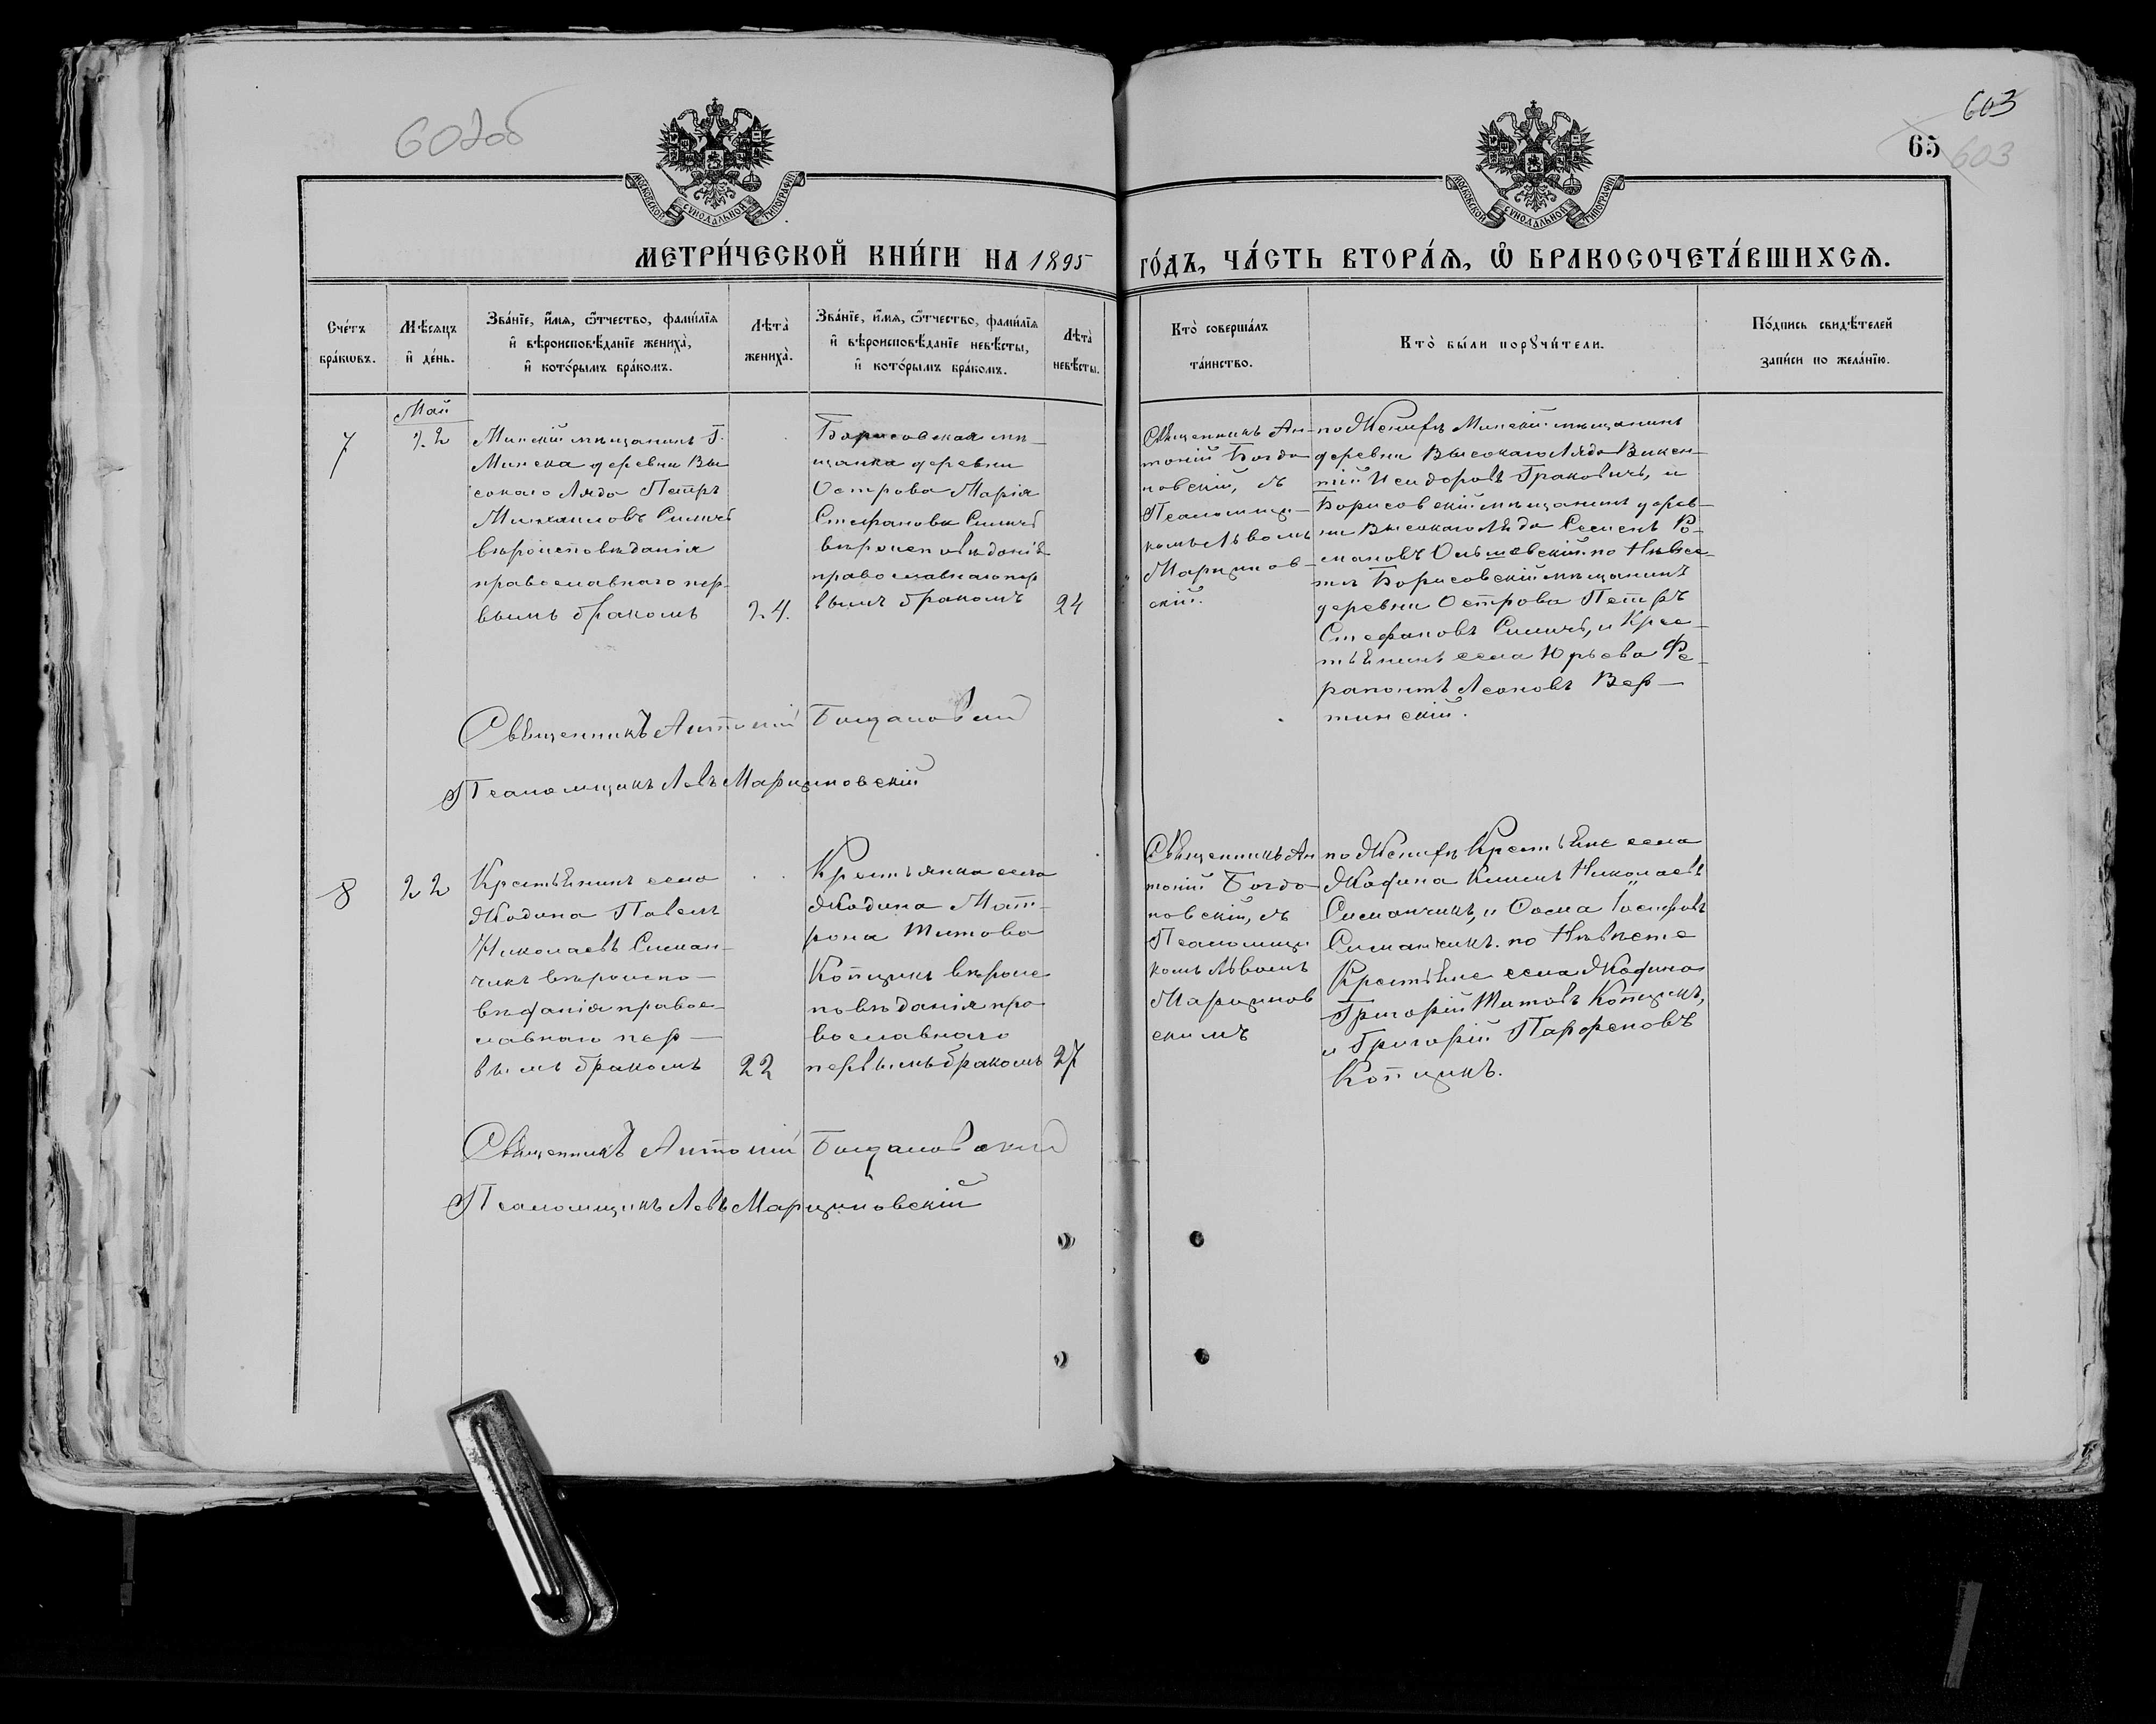 602об
603
65
603
МОСКОВСКОЙ СѴНОДАЛЬНОЙ ТИПОГРАФІИ
МОСКОВСКОЙ СѴНОДАЛЬНОЙ ТИПОГРАФІИ
МЕТРИ́ЧЕСКОЙ КНИ́ГИ НА 1895 ГО́ДЪ, ЧА́СТЬ ВТОРА́Я, Ѽ БРАКОСОЧЕТА́ВШИХСѦ.
Сче́тъ
бра́кѡвъ.
Мѣ́сѧцъ
и҆ де́нь.
Зва́нїе, и҆́мѧ, ѻ҆́тчество, фамѝлїѧ
и҆ вѣроисповѣ́данїе жениха̀,
и҆ кото́рымъ бра́комъ.
Лѣта̀
жениха̀.
Зва́нїе, и҆́мѧ, ѻ҆́тчество, фамѝлїѧ
и҆ вѣроисповѣ́данїе невѣ́сты,
и҆ кото́рымъ бра́комъ.
Лѣта̀
невѣ́сты.
Кто̀ соверша́лъ
та́инство.
Кто̀ бы́ли порꙋчи́тели.
По́дпись свидѣ́телей
за́писи по жела́нїю.
7
Май
22
Минскій мѣщанинъ Г.
Минска деревни Вы
сокаго Ляда Петръ
Михаиловъ Силичъ
вѣроисповѣданія
православнаго пер-
вымъ бракомъ
24.
Борисовская мѣ-
щанка деревни
Острова Марія
Стефанова Силичъ
вѣроисповѣданія
православнаго пер
вымъ бракомъ
24
Священникъ Ан-
тоній Богда
новскій, съ
Псаломщи-
комъ Львомъ
Марцинов-
скій.
по Женихѣ Минскій мѣщанинъ
деревни Высокаго Ляда Викен-
тій Исидоровъ Гракович, и
Борисовскій мѣщанинъ дерев-
ни Высокаго Ляда Семенъ Ро-
мановъ Ольшевскій. по Невѣс-
тѣ Борисовскій мѣщанинъ
деревни Острова Петръ
Стефановъ Силичъ, и Крес-
тьянинъ села Юрьева Фе-
рапонтъ Леоновъ Вер-
тинскій.
Священникъ Антоній Богдановскій
Псаломщикъ Левъ Марциновскій
8
22
Крестьянинъ села
Жодина Павелъ
Николаевъ Симан-
чикъ вѣроиспо-
вѣданія правос-
лавнаго пер-
вымъ бракомъ
22
Крестьянка села
Жодина Мат-
рона Титова
Копцикъ вѣроис
повѣданія пра
вославнаго
первымъ бракомъ
27
Священникъ Ан
тоній Богда
новскій, съ
Псаломщи
комъ Львомъ
Марцинов
скимъ
по Женихѣ Крестьяне села
Жодина Климъ Николаевъ
Симанчикъ, и Ѳома Іосифовъ
Симанчикъ. по Невѣсте
Крестьяне села Жодина
Григорій Титовъ Копцикъ,
и Григорій Парфеновъ
Копцикъ.
Священникъ Антоній Богдановскій
Псаломщикъ Левъ Марциновскій